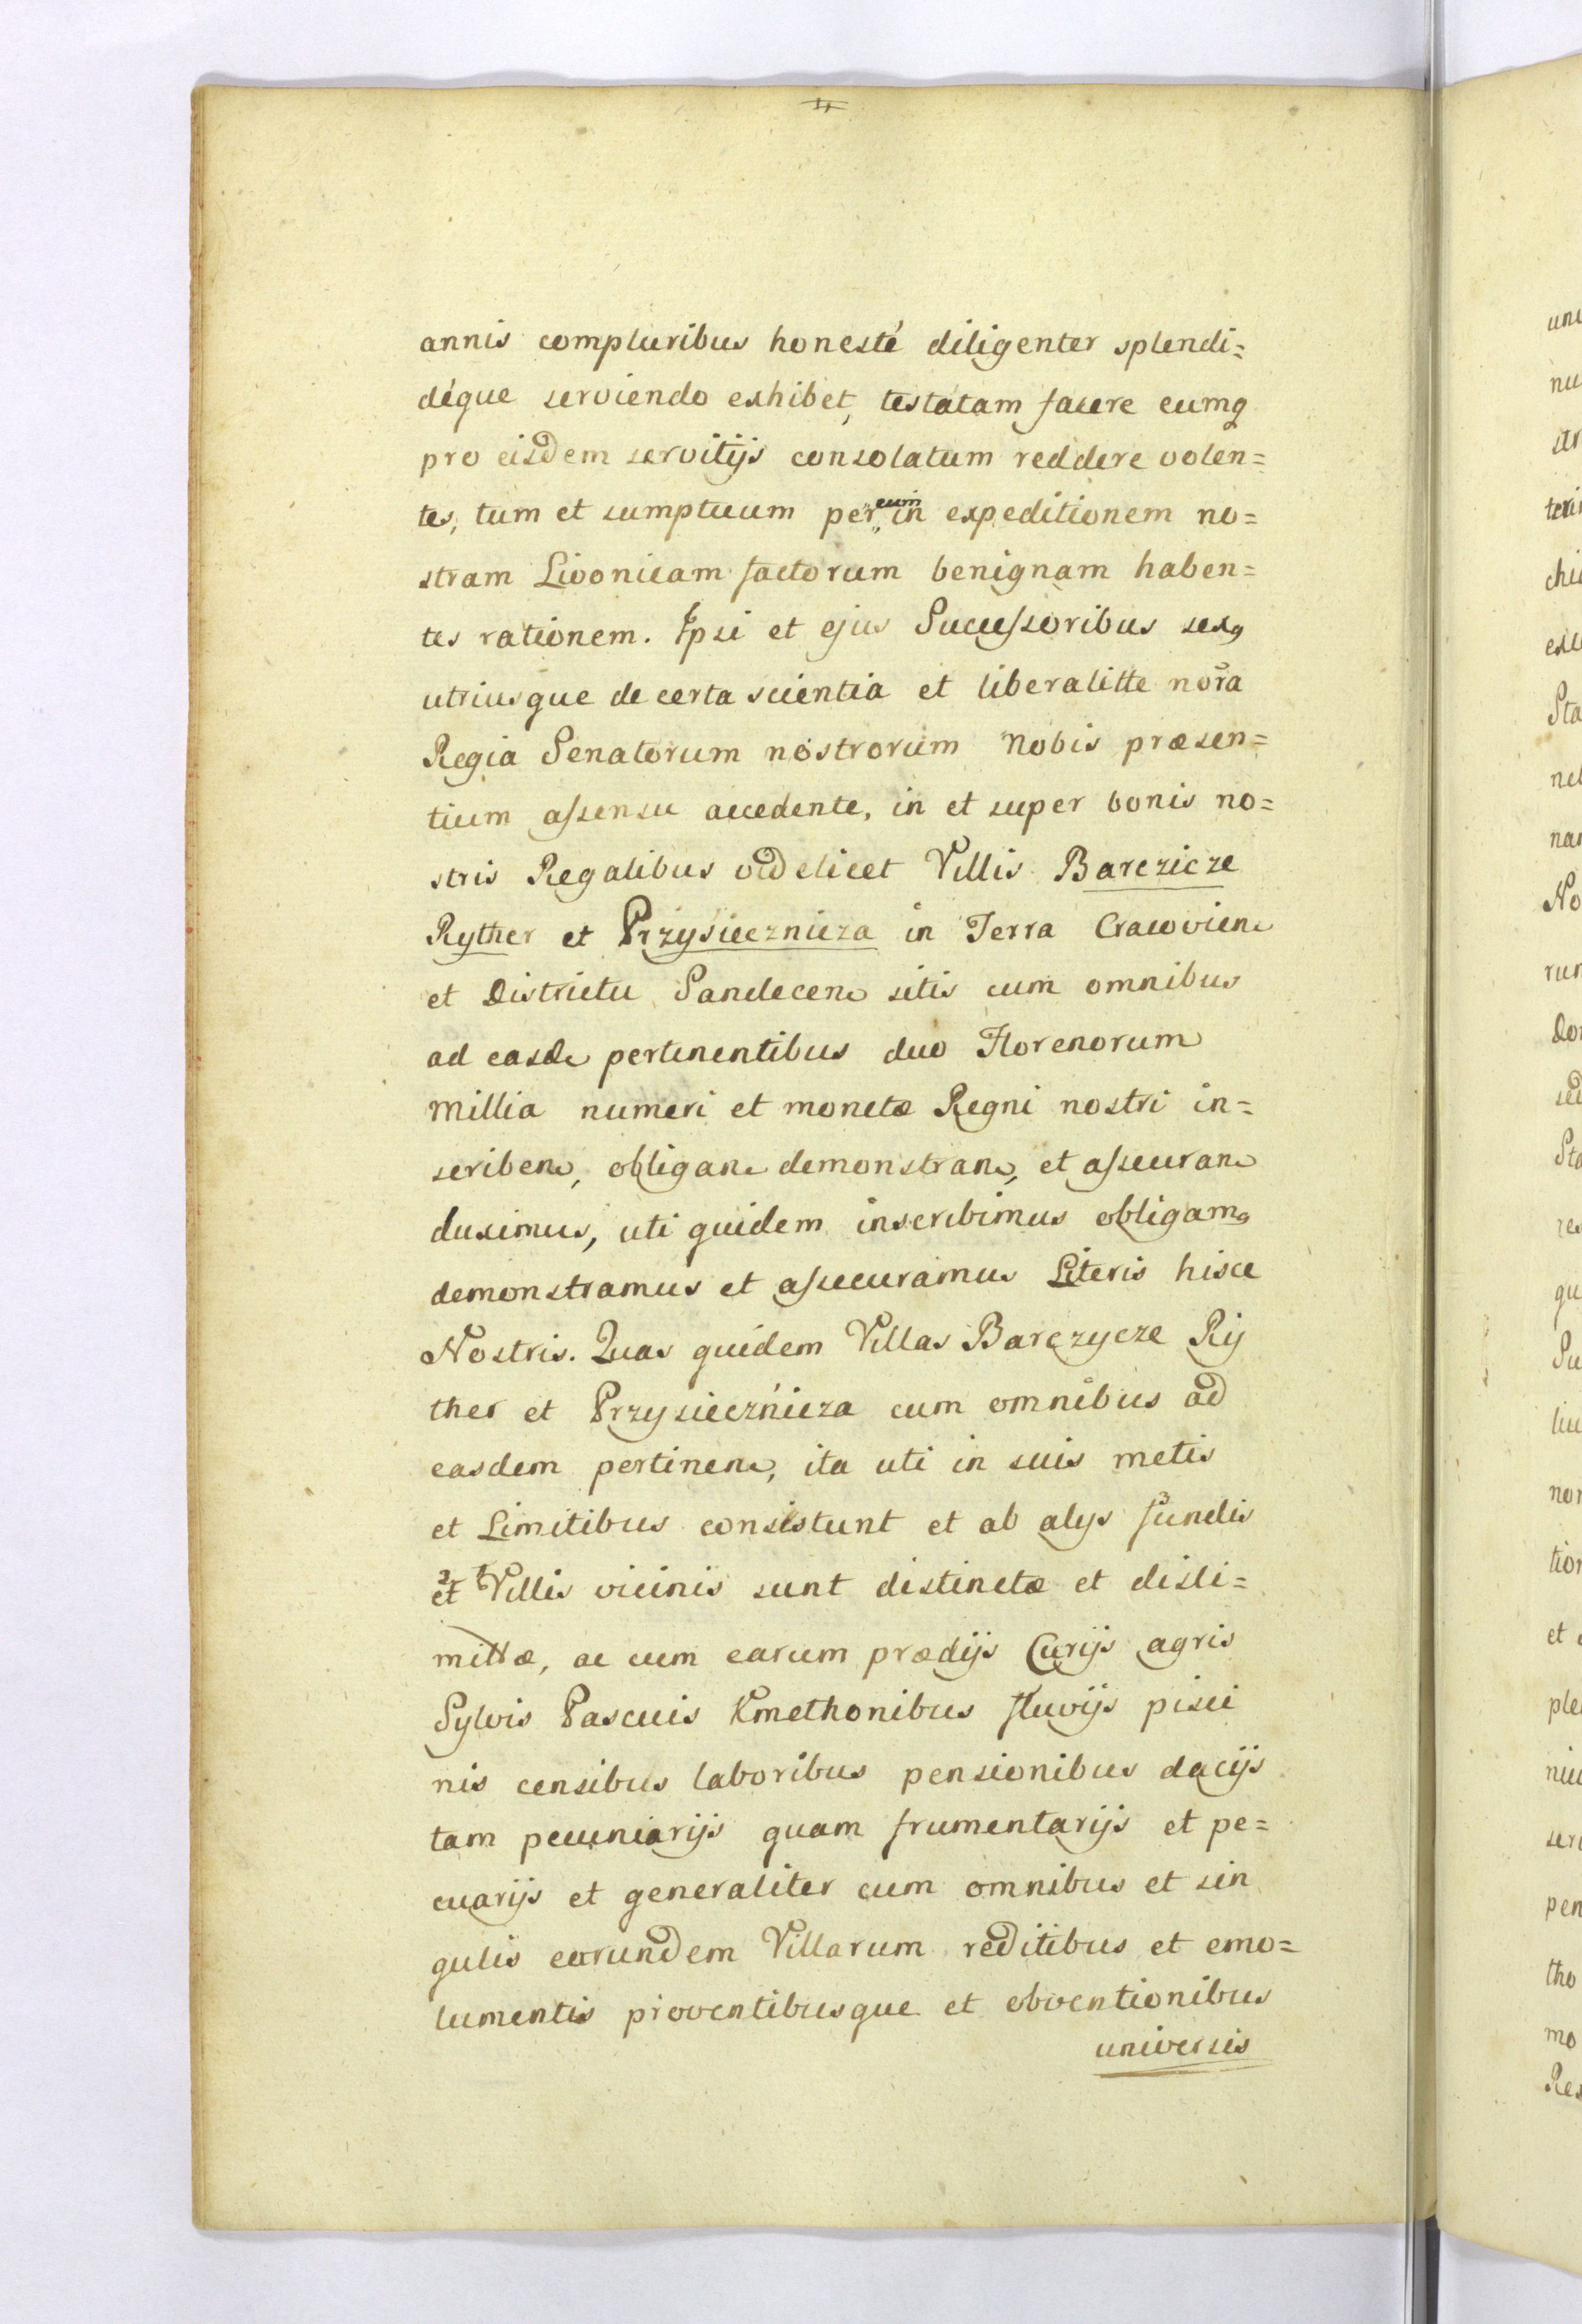 annis compluribus honesté diligenter splendi=
déque serviendo exhibet, testatam facere eumq
pro eisdem servitijs consolatum reddere volen=
tes, tum et sumptuum per eum in expeditionem no=
stram Livonicam factorum benignam haben=
tes rationem. Ipsi et ejus Successoribus sexq
utriusque de certa scientia et liberalitte nora
Regia Senatorum nostrorum Nobis præsen=
tium assensu accedente, in et super bonis no=
stris Regalibus videlicet Villis Barczicze
Ryther et Przysiecznicza in Terra Cracovien
et Districtu Sandecen sitis cum omnibus
ad easde pertinentibus duo Florenorum
Millia numeri et monetæ Regni nostri in=
scriben, obligan demonstran, et assecuran
duximus, uti quidem inscribimus obligam9
demonstramus et assecuramus Literis hisce
Nostris. Quas quidem Villas Barczycze Ry
ther et Przysiecznicza cum omnibus ad
easdem pertinen, ita uti in suis metis
et Limitibus consistunt et ab alys 3 fundis
2 et 1 Villis vicinis sunt distinctæ et disli=
mittæ, ac cum earum prædijs Curijs agris
Sylvis Pascuis Kmethonibus fluvijs pisci
nis censibus laboribus pensionibus dacijs
tam pecuniarijs quam frumentarijs et pe=
cuarijs et generaliter cum omnibus et sin
gulis earundem Villarum reditibus et emo=
lumentis proventibusque et obventionibus
universis